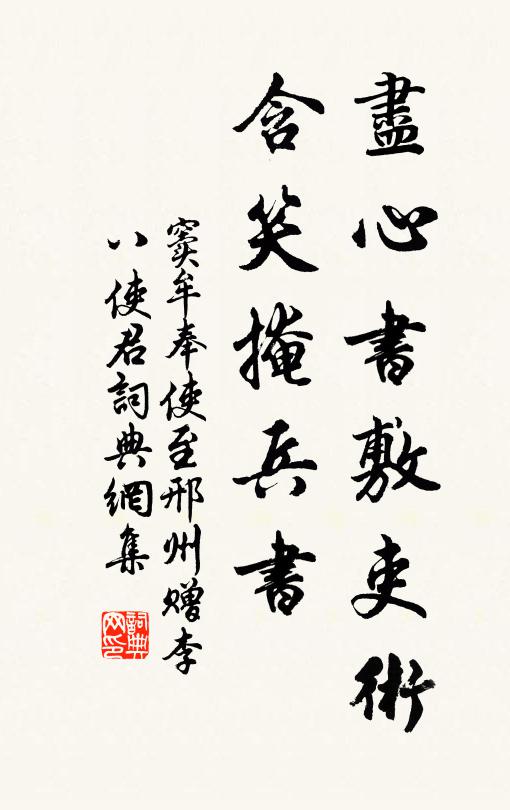 盡心書敷吏術
含笑掩兵書
竇牟奉使至邢州贈李
八使君詞典網集
詞典
网印